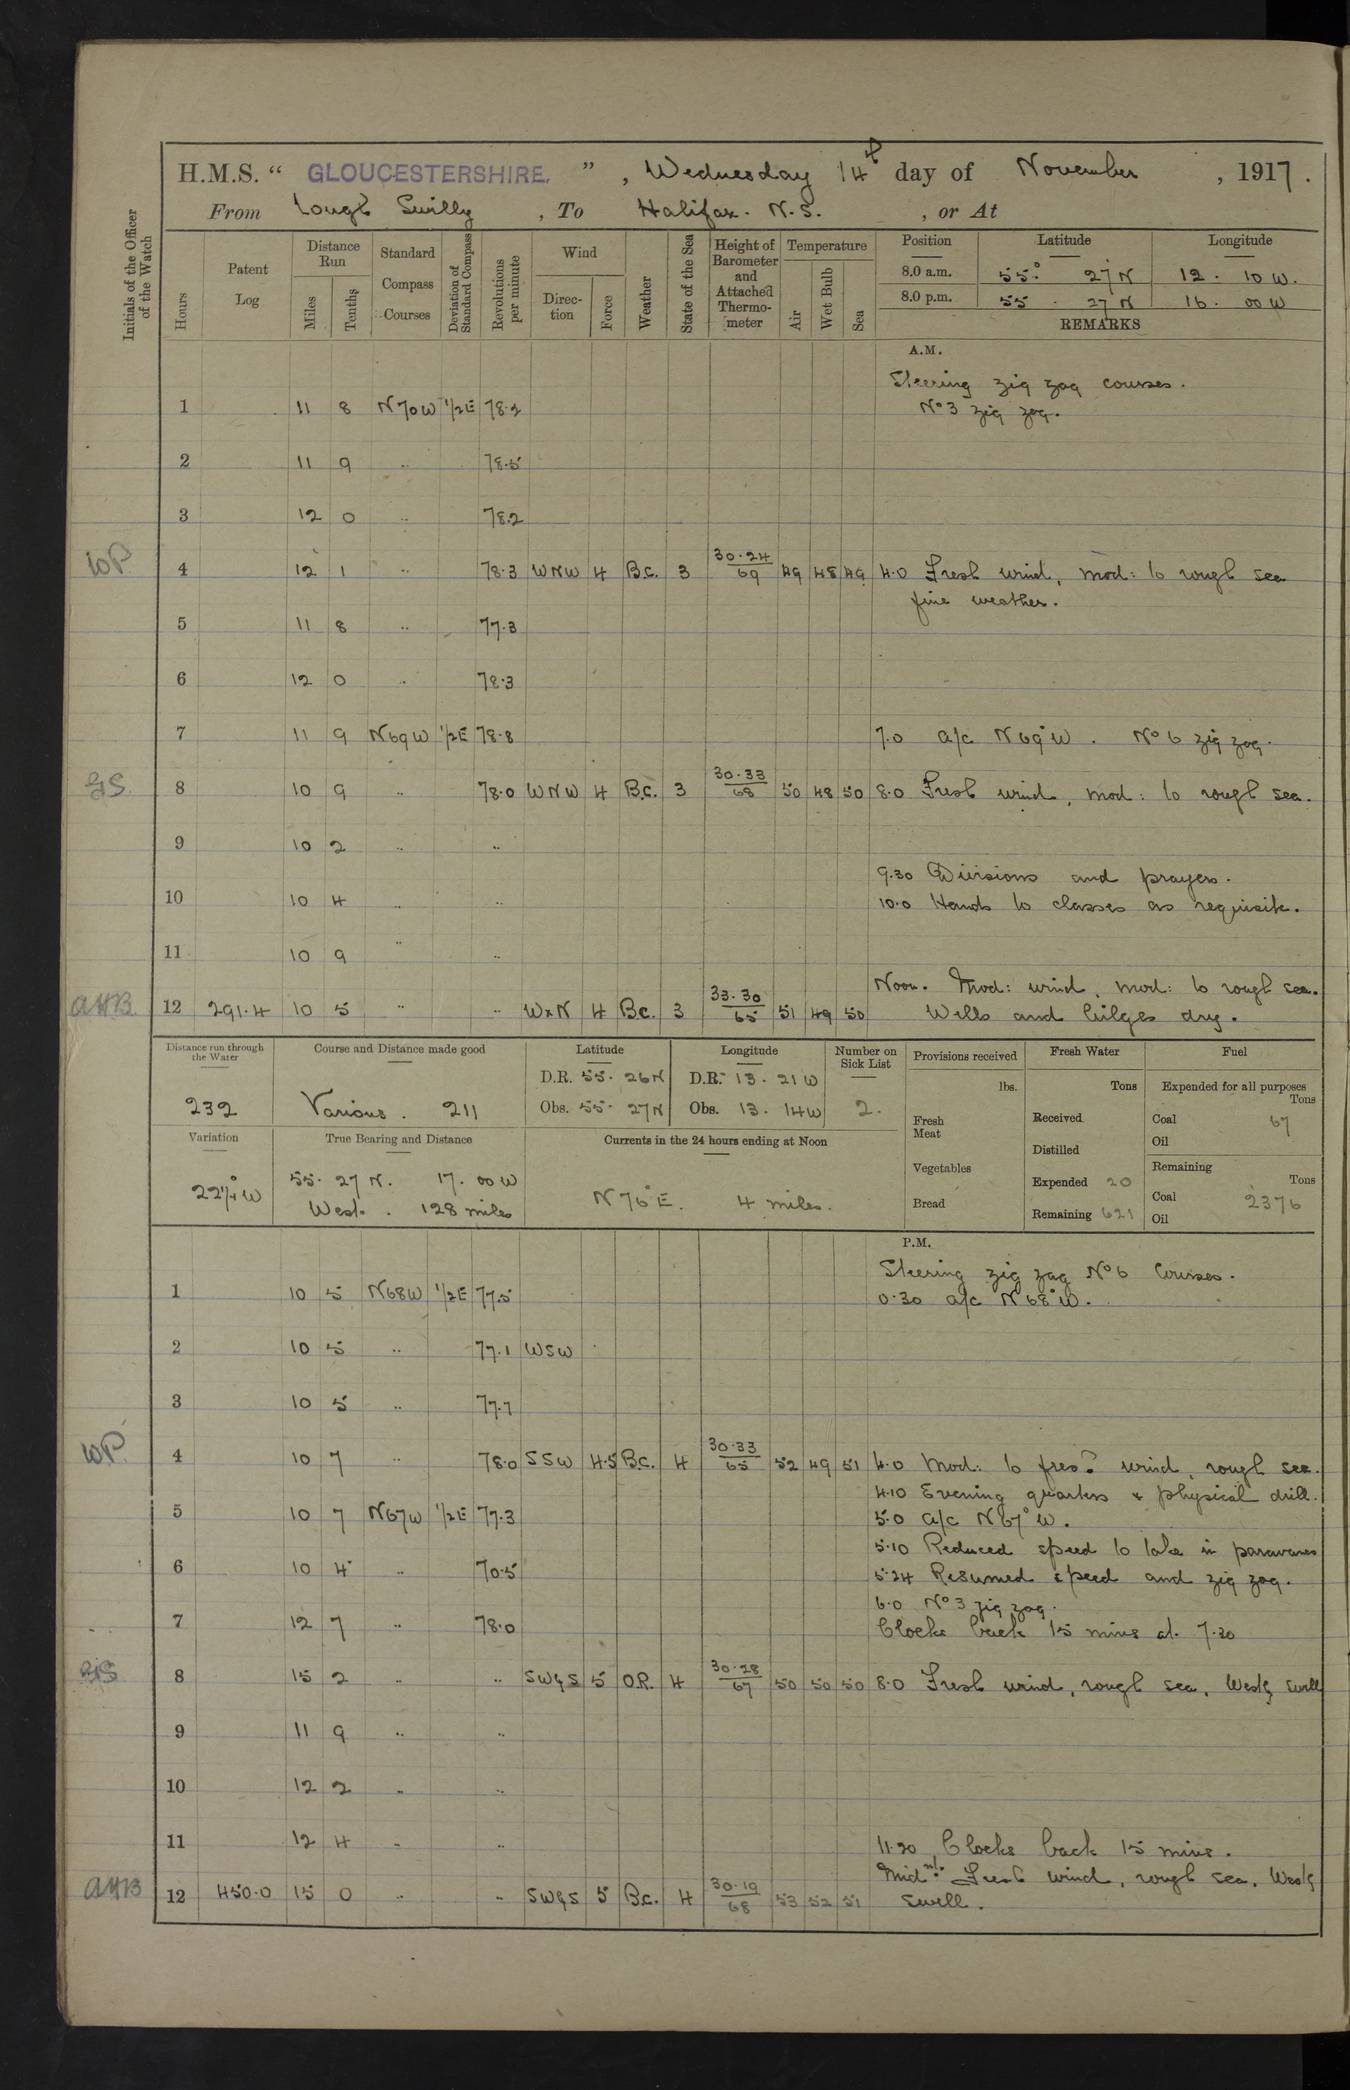 H.M.S. “ GLOUCESTERSHIRE. ” , Wednesday 14th day of November , 1917.
From Lough Swilly , To Halifax. N.S. , or At
Initials of the Officer of the Watch
Hours Patent Log Distance Run Miles Tenths Standard Compass Courses Deviation of Standard Compass Revolutions per minute Wind Direction Force Weather State of the Sea Height of Barometer and Attached Thermometer Temperature Air Wet Bulb Sea Position Latitude Longitude
8.0 a.m. 55° 27 N 12 . 10 W.
8.0 p.m. 55 . 27 N 16 . 00 W
REMARKS
A.M.
Steering zig zag courses.
1 11 8 N70W 1/2E 78.2 No 3 zig zag.
2 11 9 " 78.5
3 12 0 " 78.2
WP 4 12 1 " 78.3 WNW 4 B.c. 3 30.24/69 49 48 49 4.0 Fresh wind, mod: to rough sea
fine weather.
5 11 8 " 77.3
6 12 0 " 78.3
7 11 9 N69W 1/2E 78.8 7.0 a/c N69°W. No 6 zig zag.
GS 8 10 9 " 78.0 WNW 4 B.c. 3 30.33/68 50 48 50 8.0 Fresh wind, mod: to rough sea.
9 10 2 " "
9.30 Divisions and prayers.
10 10 4 " " 10.0 Hands to classes as requisite.
11 10 9 " "
Noon. Mod: wind, mod: to rough sea.
AHB. 12 291.4 10 5 " " WxN 4 B.c. 3 33.30/65 51 49 50 Wells and bilges dry.
Distance run through the Water Course and Distance made good Latitude Longitude Number on Sick List Provisions received Fresh Water Fuel
D.R. 55. 26N D.R. 13. 21W lbs. Tons Expended for all purposes Tons
232 Various. 211 Obs. 55. 27N Obs. 13. 14W 2. Fresh Meat Received Coal 67
Oil
Variation True Bearing and Distance Currents in the 24 hours ending at Noon Distilled
Vegetables Remaining Tons
22 1/4°W 55. 27 N. 17. 00 W N76°E. 4 miles. Expended 20 Coal 2376
West. 128 miles Bread Remaining 621 Oil
P.M.
Steering zig zag No 6 Courses.
1 10 5 N68W 1/2E 77.5 0.30 a/c N68°W.
2 10 5 " 77.1 WSW
3 10 5 " 77.7
WP. 4 10 7 " 78.0 SSW 4.5 B.c. 4 30.33/65 52 49 51 4.0 Mod: to fresh wind, rough sea.
4.10 Evening quarters & physical drill.
5 10 7 N67W 1/2E 77.3 5.0 a/c N67°W.
5.10 Reduced speed to take in paravanes
6 10 4 " 70.5 5.24 Resumed speed and zig zag.
6.0 No 3 zig zag.
7 12 7 " 78.0 Clocks back 15 mins at 7.20
GS 8 15 2 " " SWyS 5 O.R. 4 30.28/67 50 50 50 8.0 Fresh wind, rough sea, Westly swell
9 11 9 " "
10 12 2 " "
11 12 4 " " 11.20 Clocks back 15 mins.
Midnt. Fresh wind, rough sea, Westly
AHB 12 450.0 15 0 " " SWyS 5 B.c. 4 30.19/68 53 52 51 swell.